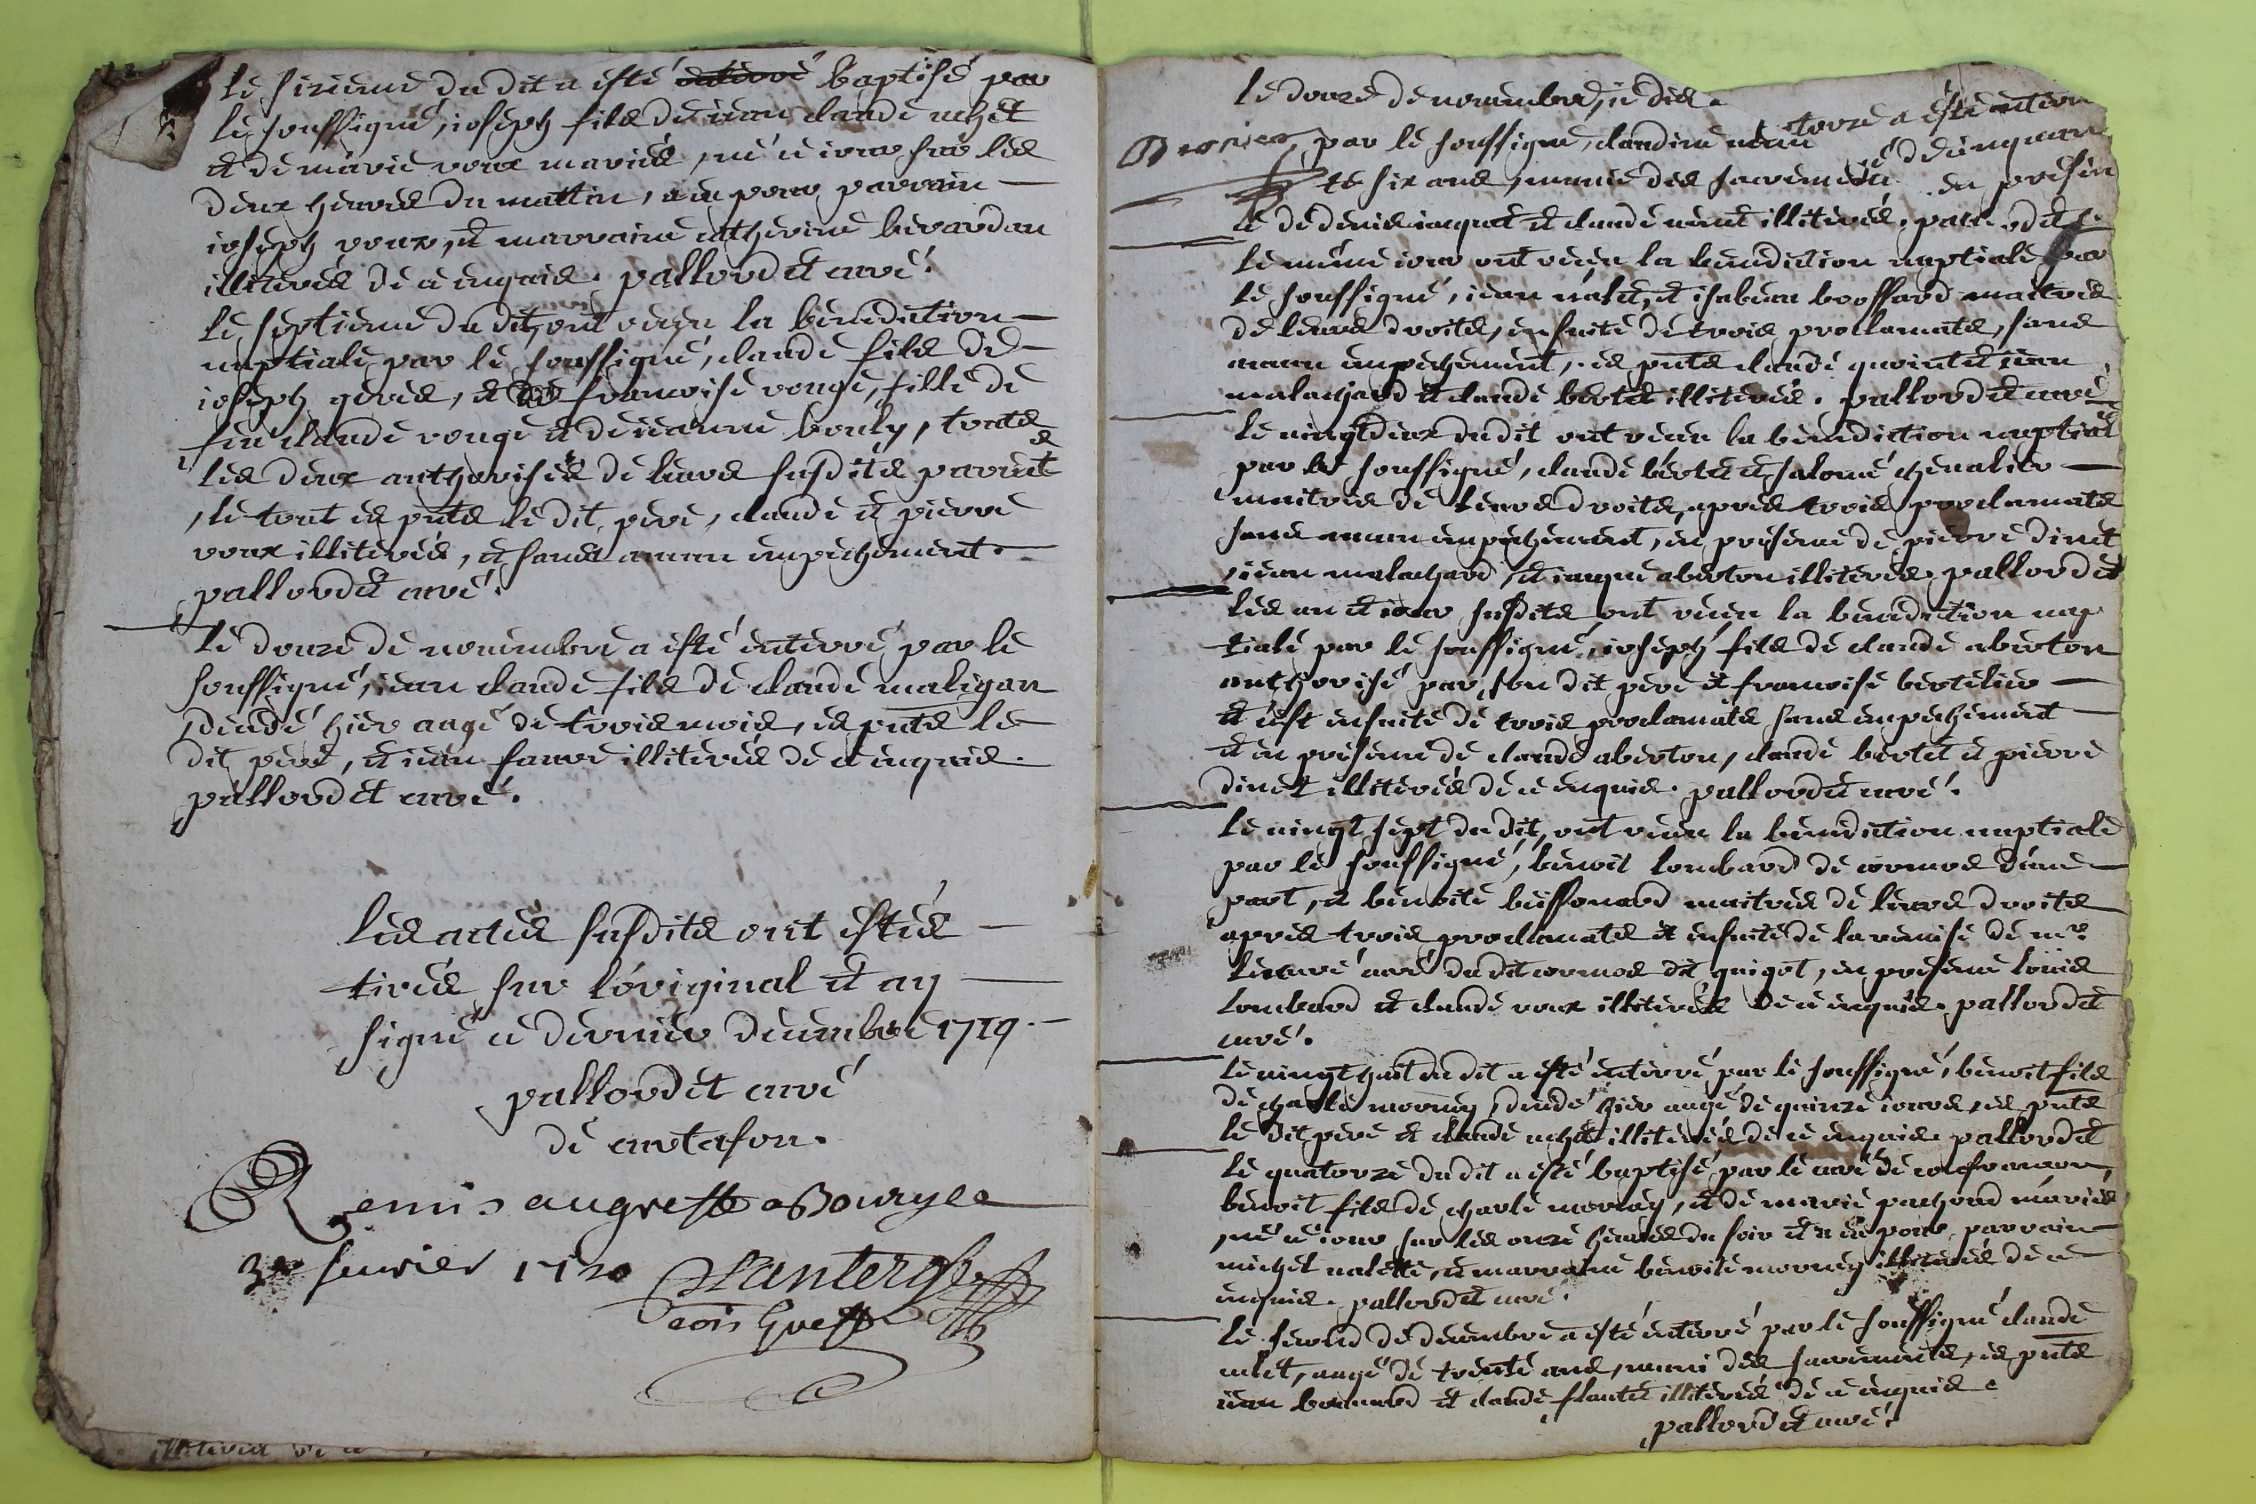 le sixieme du dit a esté enterré baptisé par
le soussigné, ioseph fils de iean claude uchet
et de marie roux mariés, né ce iour sur les
deux heures du mattin, a eu pour parrain
ioseph roux, et marraine catherine berardan
illiterés de ce enquis. pallordet curé.
le septieme du dit, ont receu la benediction
nuptiale par le soussigné, claude fils de
ioseph geres, et francoise rouge, fille de
feu claude rouge et de ieanne bouly, toutes
les deux authorisées de leurs susdits parents
, le tout es pnts le dit pere, claude et pierre
roux illiterés, et sans aucun empechement.
pallordet curé.
le douze de novembre a esté enterré par le
soussigné, iean claude fils de claude maligan
, decedé hier aagé de trois mois, es pnts le
dit pere, et iean faure illiterés de ce enquis.
pallordet curé.
les actes susdits ont estés
tirés sur l'original et ay
signé ce dernier decembre 1719.
pallordet curé
de curtafon.
Remis au greffe a Bourg le
3e feuvrier 1720
le douze de novembre, ie dis
par le soussigné, claudine
te six ans, munie des sacrements en presen
ce de denis iaquet et claude illiterés. pallordet
le même iour ont receu la benediction nuptiale par
le soussigné, iean nalet, et isabeau brossard maitres
de leurs droits, ensuite de trois proclamats, sans
aucun empechement, es pnts claude quointet iean
malachard et claude bertet illiterés. pallordet curé
le vingt deux du dit ont receu la benediction nuptial
par le soussigné, claude bertet et salomé chevalier
maitres de leurs droits, apres trois proclamats
sans aucun empechement, en presence de pierre dinet
, iean malachard, et iaque aberton illiterés pallordet
les an et iour susdits ont receu la benediction nup
tiale par le soussigné, ioseph fils de claude aberton
authorisé par son dit pere et francoise bertelier
et c'est ensuite de trois proclamats sans empechement
et en presence de claude aberton, claude bertet et pierre
dinet illiterés de ce enquis. pallordet curé.
le vingt sept du dit, ont receu la benediction nuptiale
par le soussigné, benoit lombard de cormos d'une
part, et benoite buffonard maitres de leurs droits
apres trois proclamats et ensuite de la remise de mr
curé du dit cormos dit guigot, en presence louis
lombard et claude roux illiterés de ce enquis. pallordet
curé.
le vingt huit du dit a esté enterré par le soussigné, benoit fils
de charle morney, decedé hier aagé de quinze iours, es pnts
le dit pere et claude uchet illiterés de ce enquis. pallordet
le quatorze du dit a esté baptisé par le curé de confrancon,
benoit fils de charle morney, et de marie pachoud mariés
, né ce iour sur les onze heures du soir et a eu pour parrain
michel nalette, et marraine benoite morney illiterés de ce
enquis. pallordet curé.
le second de decembre a esté enterré par le soussigné claude
aagé de trente ans, muni des sacrements, es pnts
iean et claude illiterés de ce enquis.
pallordet curé.